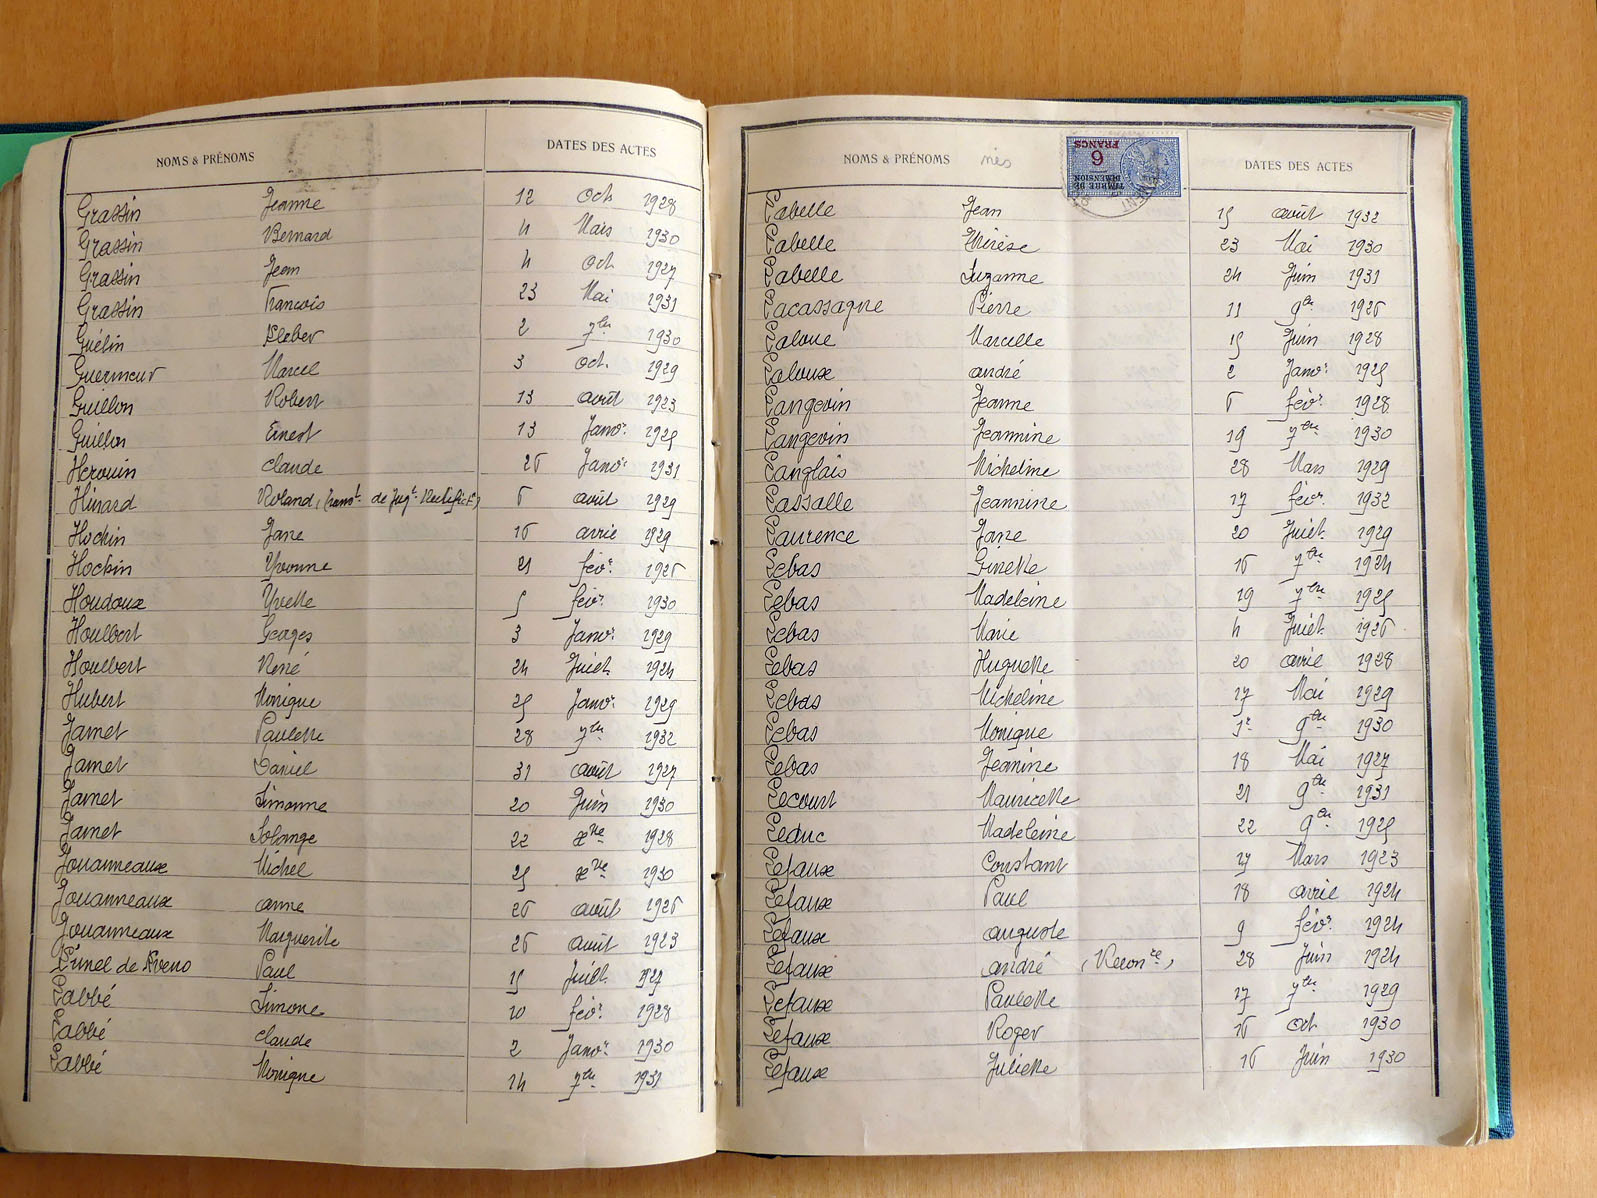 NOMS & PRÉNOMS DATES DES ACTES
Grassin Jeanne 12 Oct. 1928
Grassin Bernard 4 Mars 1930
Grassin Jean 4 Oct 1927
Grassin Francois 23 Mai 1931
Guélin Kleber 2 7bre 1930
Guermeur Marcel 3 Oct. 1929
Guillon Robert 13 août 1923
Guillon Ernest 13 Janvr. 1925
Herouin Claude 26 Janvr. 1931
Hinard Roland, (transt. de Jugt. Rectificf.) 6 août 1929
Hochin Jane 16 avril 1929
Hochin Yvonne 21 févr. 1926
Houdoux Yvette 5 févr. 1930
Houlbert Georges 3 Janvr. 1929
Houlbert René 24 Juiet. 1924
Hubert Monique 25 Janvr. 1929
Jamet Paulette 28 7bre 1932
Jamet Daniel 31 août 1927
Jamet Simonne 20 Juin 1930
Jamet Solange 22 xbre 1928
Jouanneaux Michel 25 xbre 1930
Jouanneaux anne 26 août 1926
Jouanneaux Marguerite 26 août 1923
de Paul 15 Juillt. 1927
Labbé Simone 10 févr. 1928
Labbé Claude 2 Janvr. 1930
Labbé Monique 14 7bre 1931
NOMS & PRÉNOMS nés DATES DES ACTES
TIMBRE DE DIMENSION
6 FRANCS
Labelle Jean 15 août 1932
Labelle Thérèse 23 Mai 1930
Labelle Suzanne 24 Juin 1931
Lacassagne Pierre 11 9bre 1926
Laloue Marcelle 15 Juin 1928
Laloux andré 2 Janvr. 1925
Langevin Jeanne 6 févr. 1928
Langevin Jeannine 19 7bre 1930
Langlais Micheline 28 Mars 1929
Lassalle Jeannine 17 févr. 1932
Laurence Jane 20 Juiet. 1929
Lebas Ginette 16 7bre 1924
Lebas Madeleine 19 7bre 1925
Lebas Marie 4 Juiet. 1926
Lebas Huguette 20 avril 1928
Lebas Micheline 17 Mai 1929
Lebas Monique 1er 9bre 1930
Lebas Jeanine 18 Mai 1927
Lecourt Mauricette 21 9bre 1931
Leduc Madeleine 22 9bre 1925
Lefaux Constant 27 Mars 1923
Lefaux Paul 18 avril 1924
Lefaux auguste 9 févr. 1924
Lefaux andré (Reconce) 28 Juin 1924
Lefaux Paulette 17 7bre 1929
Lefaux Roger 16 Oct 1930
Lefaux Juliette 16 Juin 1930